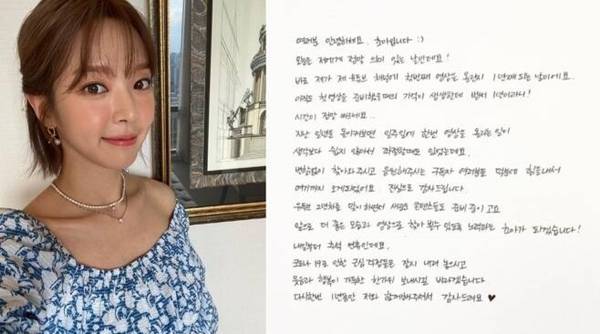 여러분 안녕하세요. 초아입니다 :)
오늘은 저에게 정말 뜻이 있는 날인데요!
바로 제가 제 유튜브 채널에 첫번째 영상을 올린지 1년째 되는 날이에요.
아직도 첫 영상을 준비했을때의 기억이 생생한데 벌써 1년이라니!
시간이 정말 빠르네요..
지난 일년을 돌이켜보면 일주일에 한번 영상을 올리는 일이
생각보다 쉽지 않아서 걱정할때도 있었는데요.
변함없이 찾아와주시고 응원해주시는 구독자 여러분들 덕분에 힘을내서
여기까지 오게되었어요. 진심으로 감사드립니다
유튜브 2년차로 접어 하면서 새로운 콘텐츠들도 준비 중이고요
앞으로 더 좋은 모습과 영상으로 찾아 뵐수 있도록 노력하는 초아가 되겠습니다!
내일부터 추석 연휴인데요.
코로나 19로 인한 근심 걱정들은 잠시 내려 놓으시고
웃음과 행복이 가득한 한가위 보내시길 바라겠습니다
다시한번 1년동안 저와 함께해주셔서 감사드려요 ♥